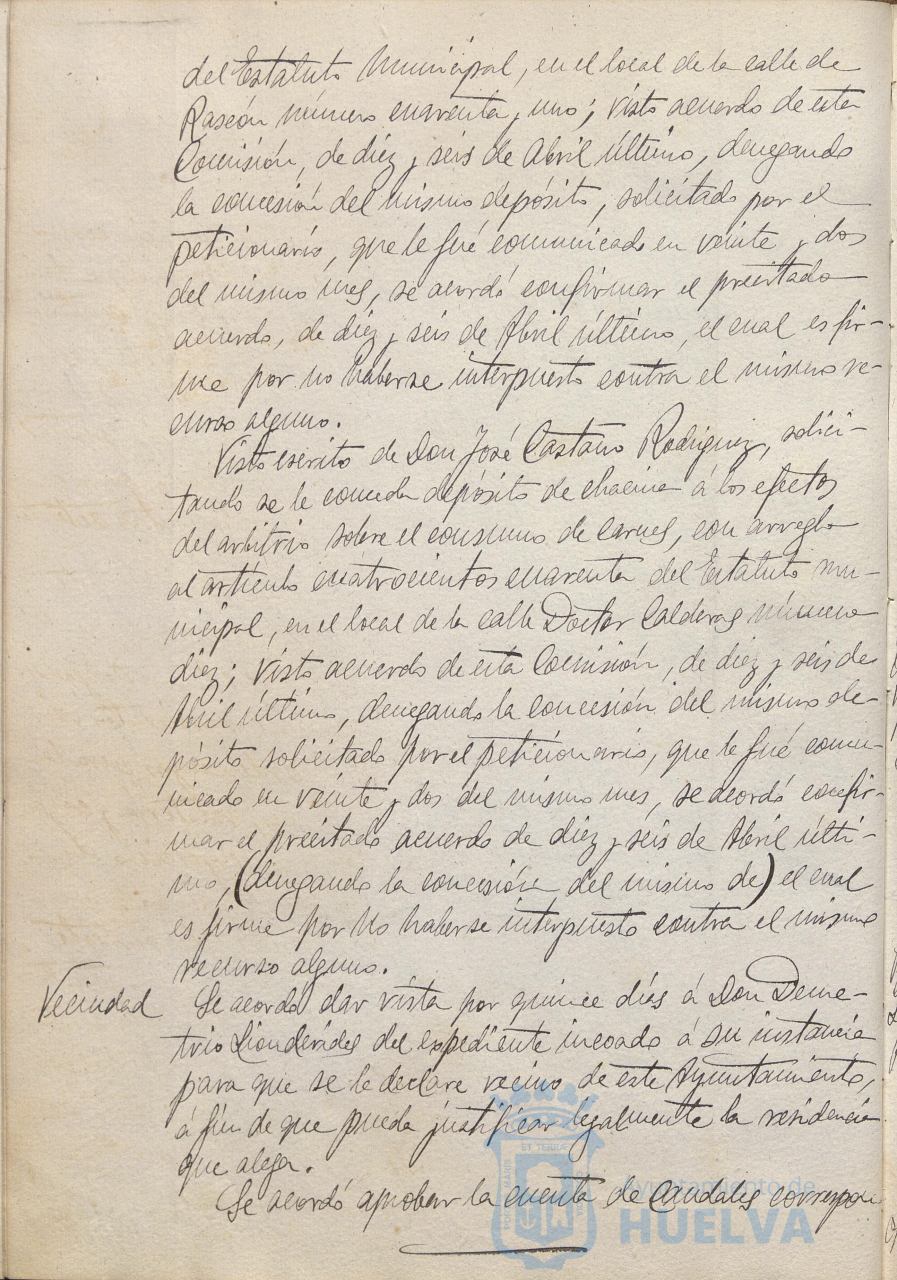 del Estatuto Municipal, en el local de la calle de
Rascón número cuarenta y uno; visto acuerdo de esta
Comisión, de diez y seis de Abril último, denegando
la concesión del mismo depósito, solicitado por el
peticionario, que le fué comunicado en veinte y dos
del mismo mes, se acordó confirmar el precitado
acuerdo, de diez y seis de Abril último, el cual es fir-
me por no haberse interpuesto contra el mismo re-
curso alguno.
Visto escrito de Don José Castaño Rodriguez, solici-
tando se le conceda depósito de chacina á los efectos
del arbitrio sobre el consumo de carnes, con arreglo
al artículo cuatrocientos cuarenta del Estatuto mu-
nicipal, en el local de la calle Doctor Calderas número
diez; visto acuerdo de esta Comisión, de diez y seis de
Abril último, denegando la concesión del mismo de-
pósito solicitado por el peticionario, que le fué comu-
nicado en veinte y dos del mismo mes, se acordó confir-
mar el precitado acuerdo de diez y seis de Abril últi-
mo, (denegando la concesión del mismo de) el cual
es firme por no haberse interpuesto contra el mismo
recurso alguno.
Vecindad
Se acordó dar vista por quince días á Don Deme-
trio del expediente incoado á su instancia
para que se le declare vecino de este Ayuntamiento,
á fin de que pueda justificar legalmente la residencia
que alega.
Se acordó aprobar la cuenta de Caudales correspon
Ayuntamiento de
HUELVA